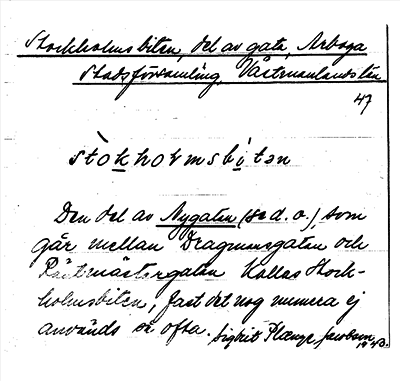 Stockholmsbiten, del av gata, Arboga
Stadsförsamling, Västmanlands län
47
stòkhormsbìtən
Den del av Nygatan (se d. o.), som
går mellan Dragmansgatan och
Rådmästergatan kallas Stock-
holmsbiten, fast det nog numera ej
används så ofta. Sigbrit Plænge Jacobson